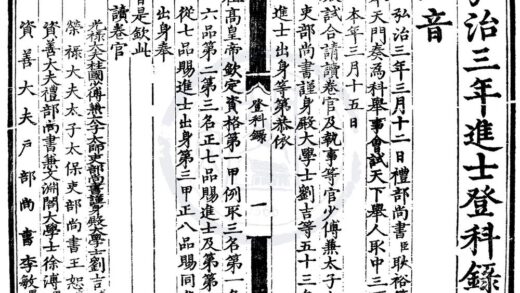 弘治三年進士登科錄
音
弘治三年三月十二日禮部尚書臣耿裕
奉天門奏為科舉事會試天下舉人取中三
本年三月十五日
試合請讀卷官及執事等官少傅兼太子
吏部尚書謹身殿大學士劉吉等五十三
進士出身等第恭依
登科錄 一
高皇帝欽定資格第一甲例取三名第一
六品第二第三名正七品賜進士及第第
從七品賜進士出身第三甲正八品賜同
出身奉
旨是欽此
讀卷官
光祿大夫柱國少傅兼太子太師吏部尚書謹身殿大學士劉吉
榮祿大夫太子太保吏部尚書王恕
資善大夫禮部尚書兼文淵閣大學士徐溥
資善大夫戶部尚書李敏